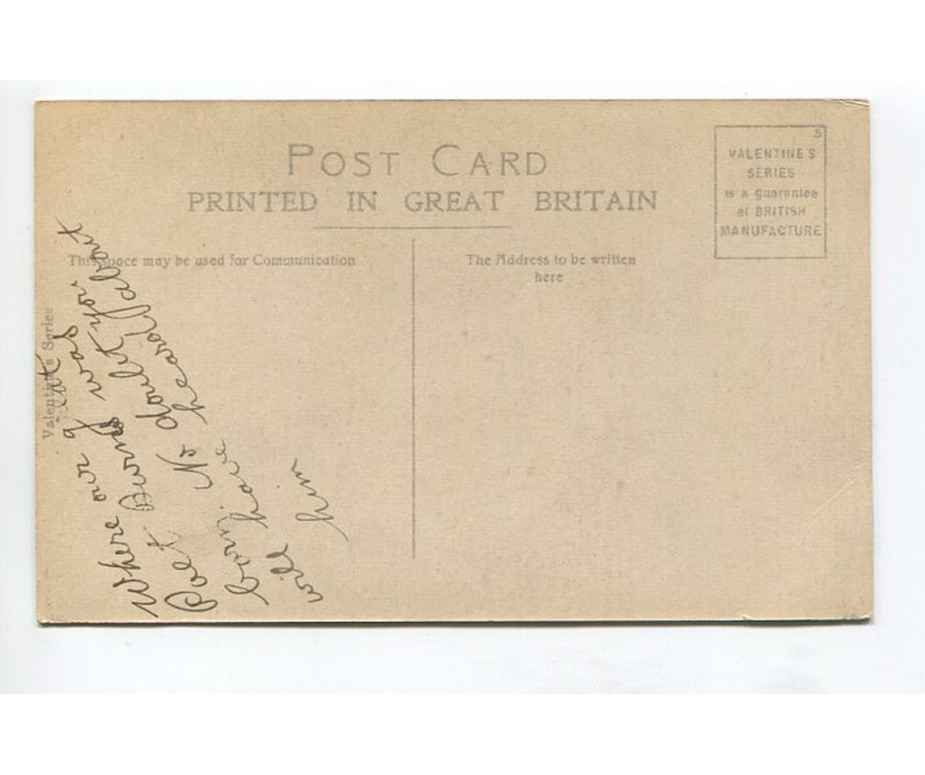 POST CARD
PRINTED IN GREAT BRITAIN
VALENTINE'S
SERIES
is a guarantee
of BRITISH
MANUFACTURE
This space may be used for Communication
The Address to be written
here
Valentine's Series
Where our
Poet Burns was
born No doubt you
will have heard about
him